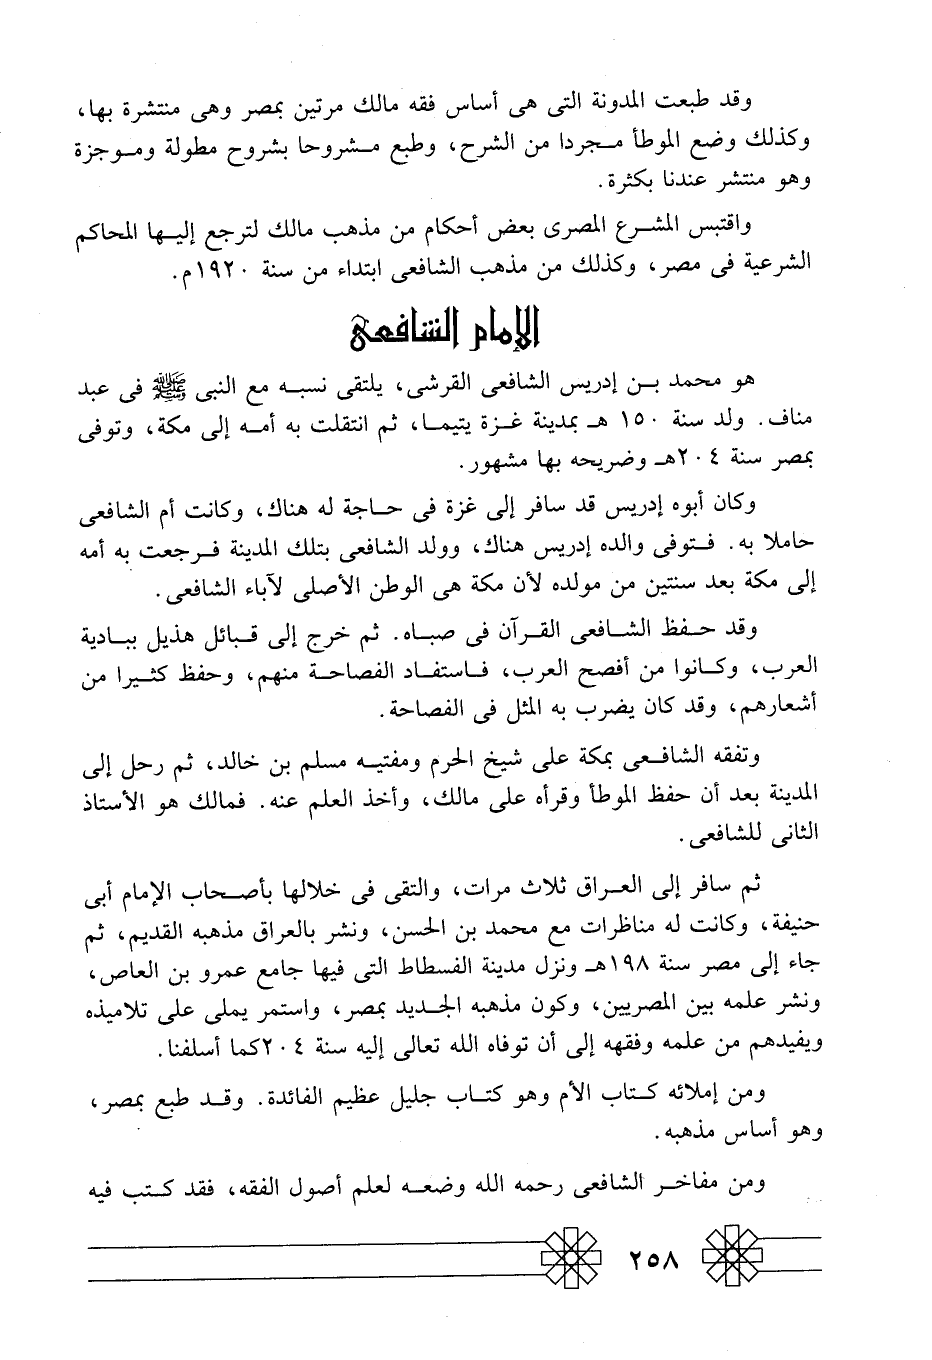 وقد طبعت المدونة التى هى أساس فقه مالك مرتين بمصر وهى منتشرة بها،
وكذلك وضع الموطأ مجردا من الشرح، وطبع مشروحا بشروح مطولة وموجزة
وهو منتشر عندنا بكثرة.
واقتبس المشرع المصرى بعض أحكام من مذهب مالك لترجع إليها المحاكم
الشرعية فى مصر، وكذلك من مذهب الشافعى ابتداء من سنة ١٩٢٠م.
الإمام الشافعى
هو محمد بن إدريس الشافعى القرشى، يلتقى نسبه مع النبى ﷺ فى عبد
مناف. ولد سنة ١٥٠ هـ بمدينة غزة يتيما، ثم انتقلت به أمه إلى مكة، وتوفى
بمصر سنة ٢٠٤هـ وضريحه بها مشهور.
وكان أبوه إدريس قد سافر إلى غزة فى حاجة له هناك، وكانت أم الشافعى
حاملا به. فتوفى والده إدريس هناك، وولد الشافعى بتلك المدينة فرجعت به أمه
إلى مكة بعد سنتين من مولده لأن مكة هى الوطن الأصلى لآباء الشافعى.
وقد حفظ الشافعى القرآن فى صباه. ثم خرج إلى قبائل هذيل ببادية
العرب، وكانوا من أفصح العرب، فاستفاد الفصاحة منهم، وحفظ كثيرا من
أشعارهم، وقد كان يضرب به المثل فى الفصاحة.
وتفقه الشافعى بمكة على شيخ الحرم ومفتيه مسلم بن خالد، ثم رحل إلى
المدينة بعد أن حفظ الموطأ وقرأه على مالك، وأخذ العلم عنه. فمالك هو الأستاذ
الثانى للشافعى.
ثم سافر إلى العراق ثلاث مرات، والتقى فى خلالها بأصحاب الإمام أبى
حنيفة، وكانت له مناظرات مع محمد بن الحسن، ونشر بالعراق مذهبه القديم، ثم
جاء إلى مصر سنة ١٩٨هـ ونزل مدينة الفسطاط التى فيها جامع عمرو بن العاص،
ونشر علمه بين المصريين، وكون مذهبه الجديد بمصر، واستمر يملى على تلاميذه
ويفيدهم من علمه وفقهه إلى أن توفاه الله تعالى إليه سنة ٢٠٤كما أسلفنا.
ومن إملائه كتاب الأم وهو كتاب جليل عظيم الفائدة. وقد طبع بمصر،
وهو أساس مذهبه.
ومن مفاخر الشافعى رحمه الله وضعه لعلم أصول الفقه، فقد كتب فيه
٢٥٨